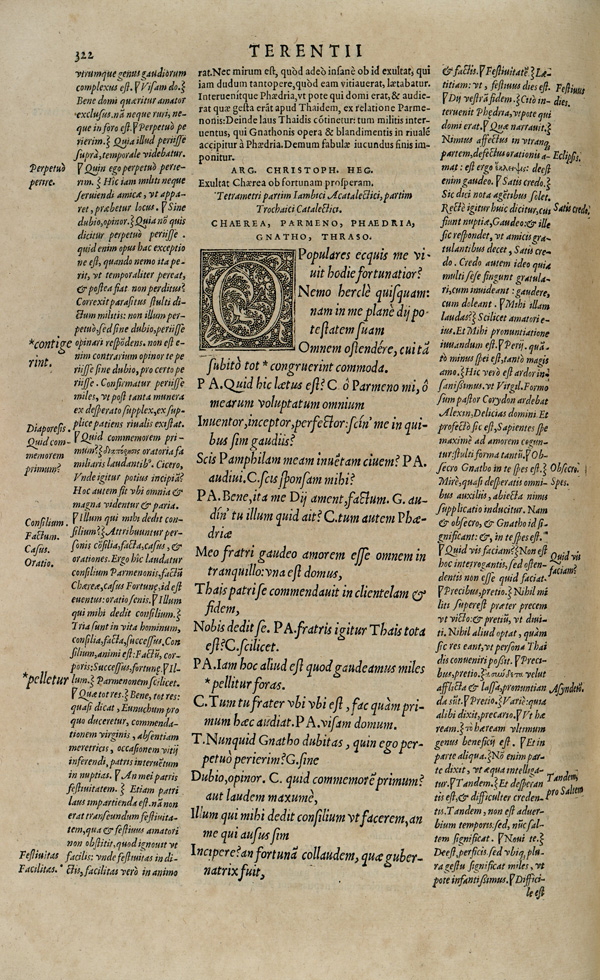 322
TERENTII
vtrumque genus gaudiorum
complexus est. Visam do.
Bene domi quæritur amator
exclusus. nã neque ruri, ne-
que in foro est. Perpetuò pe
rierim. Quia illud periisse
suprà, temporale videbatur.
Quin ego perpetuò perie-
rim. Hic iam militi neque
seruiendi amicæ, vt appa-
ret, præbetur locus. Sine
dubio, opinor. Quia nõ quis
dicitur perpetuò periisse.
quid enim opus hac exceptio
ne est, quando nemo ita pe-
rit, vt temporaliter pereat,
& postea fiat non perditus?
Correxit parasitus stulti di-
ctum militis: non illum per-
petuò, sed sine dubio, periisse
opinari respõdens. non est e-
nim contrarium opinor te pe
riisse sine dubio, pro certo pe
riisse. Confirmatur periisse
miles, vt post tanta munera
ex desperato supplex, ex sup-
plice patiens riualis existat.
Quid commemorem pri-
mum? oratoria fa
miliaris laudantib. Cicero,
Vnde igitur potius incipiã?
Hoc autem fit vbi omnia &
magna videntur & paria.
Illum qui mihi dedit con-
silium? Attribuuntur per-
sonis cõsilia, facta, casus, &
orationes. Ergo hic laudatur
consilium Parmenonis, factũ
Chæreæ, casus Fortunæ, id est
euentus: oratio senis. Illum
qui mihi dedit consilium.
Tria sunt in vita hominum,
consilia, facta, successus. Con
silium, animi est: Factũ, cor-
poris: Successus, fortunæ. Il-
lum. Parmenonem scilicet.
Quæ tot res. Bene, tot res:
quasi dicat, Eunuchum pro
quo duceretur, commenda-
tionem virginis, absentiam
meretricis, occasionem vitij
inferendi, patris interuẽtum
in nuptias. An mei parris
festiuitatem. Etiam patri
laus impartienda est. nã non
erat transeundum festiuita-
tem, qua & festiuus amatori
non obstitit, quod ignouit vt
facilis: vnde festiuitas in di-
ctis, facilitas verò in animo
Perpetuò
perire.
*contige
rint.
Diaporesis.
Quid com-
memorem
primum?
Consilium.
Factum.
Casus.
Oratio.
*pelletur
Festiuitas
Facilitas.
rat. Nec mirum est, quòd adeò insanè ob id exultat, qui
iam dudum tantopere, quòd eam vitiauerat, lætabatur.
Interuenitque Phædria, vt pote qui domi erat, & audie-
rat quæ gesta erãt apud Thaidem, ex relatione Parme-
nonis: Deinde laus Thaidis cõtinetur: tum militis inter-
uentus, qui Gnathonis opera & blandimentis in riualẽ
accipitur à Phædria. Demum fabulæ iucundus finis im-
ponitur.
ARG. CHRISTOPH. HEG.
Exultat Chærea ob fortunam prosperam.
Tetrametri partim Iambici Acatalectici, partim
Trochaici Catalectici.
CHAEREA, PARMENO, PHAEDRIA,
GNATHO, THRASO.
O Populares ecquis me vi-
uit hodie fortunatior?
Nemo herclè quisquam:
nam in me planè dij po-
testatem suam
Omnem ostendére, cui tã
subitò tot * congruerint commoda.
P A. Quid hic lætus est? C. ô Parmeno mi, ô
mearum voluptatum omnium
Inuentor, inceptor, perfector: scin' me in qui-
bus sim gaudiis?
Scis Pamphilam meam inuẽtam ciuem? P A.
audiui. C. scis sponsam mihi?
P A. Bene, ita me Dij ament, factum. G. au-
dín' tu illum quid ait? C. tum autem Phæ-
driæ
Meo fratri gaudeo amorem esse omnem in
tranquillo: vna est domus,
Thais patri se commendauit in clientelam &
fidem,
Nobis dedit se. P A. fratris igitur Thais tota
est? C. scilicet.
P A. Iam hoc aliud est quod gaudeamus miles
* pellitur foras.
C. Tum tu frater vbi vbi est, fac quàm pri-
mum hæc audiat. P A. visam domum.
T. Nunquid Gnatho dubitas, quin ego per-
petuò perierim? G. sine
Dubio, opinor. C. quid commemorẽ primum?
aut laudem maxumè,
Illum qui mihi dedit consilium vt facerem, an
me qui ausus sim
Incipere? an fortunã collaudem, quæ guber-
natrix fuit,
& factis. Festiuitatẽ. Læ-
titiam: vt, festiuus dies est.
Dij vestrã fidem. Citò in-
teruenit Phædria, vt pote qui
domi erat. Quæ narrauit.
Nimius affectus in vtranq́;
partem, defectus orationis a-
mat: est ergo deest
enim gaudeo. Satis credo.
Sic dici nota agẽtibus solet.
Rectè igitur huic dicitur, cui
fiunt nuptiæ, Gaudeo: & ille
sic respondet, vt amicis gra-
tulantibus decet, Satis cre-
do. Credo autem ideo quia
multi sese fingunt gratula-
ri, cum inuideant: gaudere,
cum doleant. Mihi illam
laudas? Scilicet amatori e-
ius. Et Mihi pronuntiatione
iuuandum est. Perij. quã-
tò minus spei est, tantò magis
amo. Hic verò est ardor in-
sanissimus. vt Virgil. Formo
sum pastor Corydon ardebat
Alexin, Delicias domini. Et
profectò sic est, Sapientes spe
maximè ad amorem cogun-
tur: stulti forma tantũ. Ob-
secro Gnatho in te spes est.
Mirè, quasi desperatis omni-
bus auxiliis, abiecta nimus
supplicatio inducitur. Nam
& obsecro, & Gnatho id si-
gnificant: &, in te spes est.
Quid vis faciam? Non est
hoc interrogantis, sed osten-
dentis non esse quid faciat.
Precibus, pretio. Nihil mi
liti superest præter precem
vt victo: & pretiũ, vt diui-
ti. Nihil aliud optat, quàm
sic res eant, vt persona Thai
dis conueniri possit. Preci-
bus, pretio. velut
afflicta & lassa, pronuntian
da sũt. Pretio. Variè: quia
alibi dixit, precario. Vt hæ
ream. τὸ hæream vltimum
genus beneficij est. Et in
parte aliqua. Nõ enim par-
te dixit, vt æqua intelliga-
tur. Tandem. Et desperan
tis est, & difficulter creden-
tis. Tandem, non est aduer-
bium temporis, sed, nũc sal-
tem significat. Noui te.
Deest, perficis. sed vbiq́;, plu-
ra gestu significat miles, vt
pote infantissimus. Diffici-
le est
Festiuus
dies.
Eclipsis.
Satis credo.
Obsecro.
Spes.
Quid vis
faciam?
Asyndetũ.
Tandem,
pro Saltem